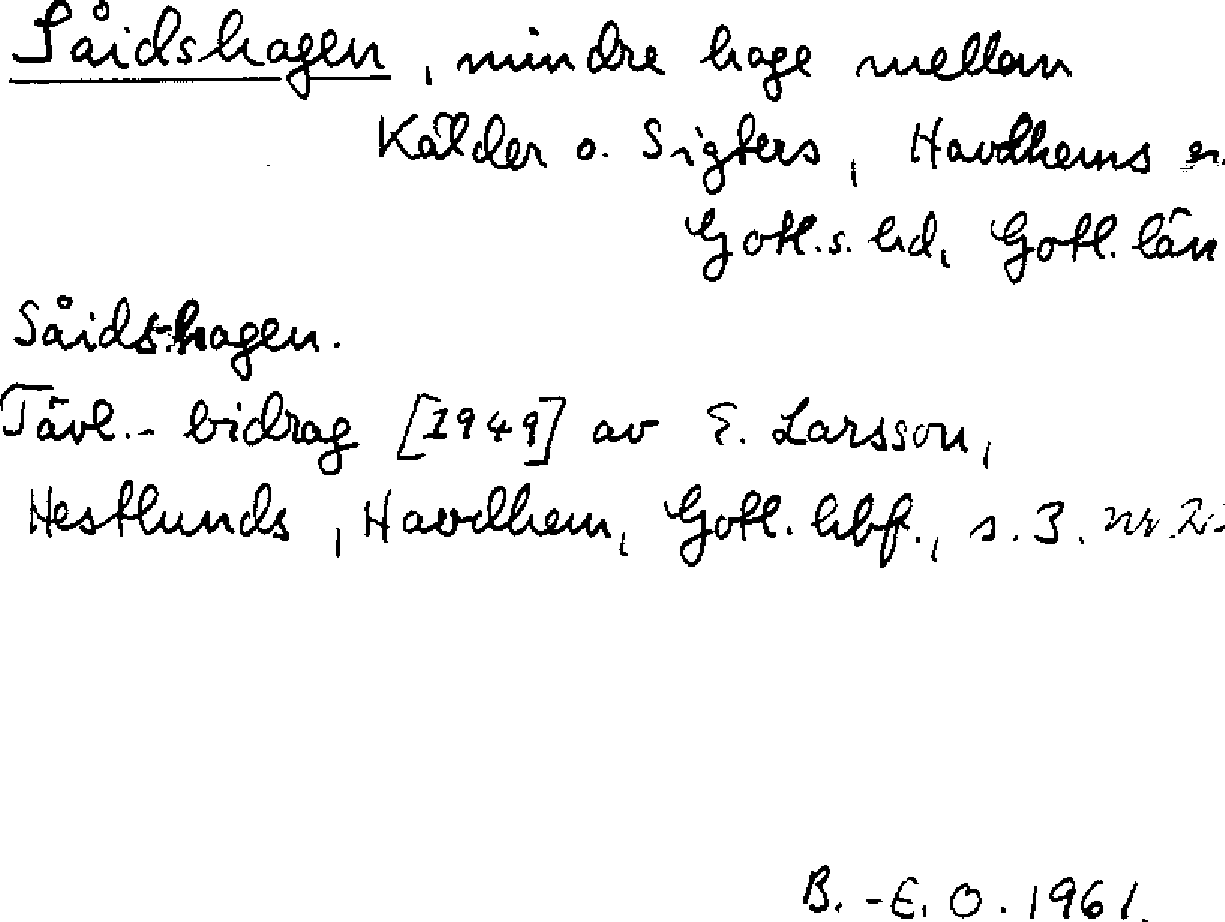 Såidshagen, mindre hage mellan
Kälder o. Sigters, Havdhems sn.
Gotl.s. hd, Gotl. län
Såidshagen.
Tävl.-bidrag [1949] av E. Larsson,
Hestlunds, Havdhem, Gotl. hbf., s. 3. nr
B.-E. O. 1961.